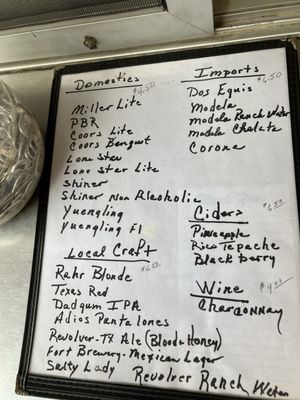 Domestics
$4.50
Miller Lite
PBR
Coors Lite
Coors Banquet
Lone Star
Lone Star Lite
Shiner
Shiner Non Alcoholic
Yuengling
Yuengling Fl
Local Craft
$6.00
Rahr Blonde
Texas Red
Dadgum IPA
Adios Pantalones
Revolver-TX Ale (Blood & Honey)
Fort Brewery-Mexican Lager
Salty Lady
Revolver Ranch Water
Imports
Dos Equis
Modela
modela Ranch Water
modela Chelata
Corona
Ciders
Pineapple
Rico Tepache
Blackberry
Wine
Chardonnay